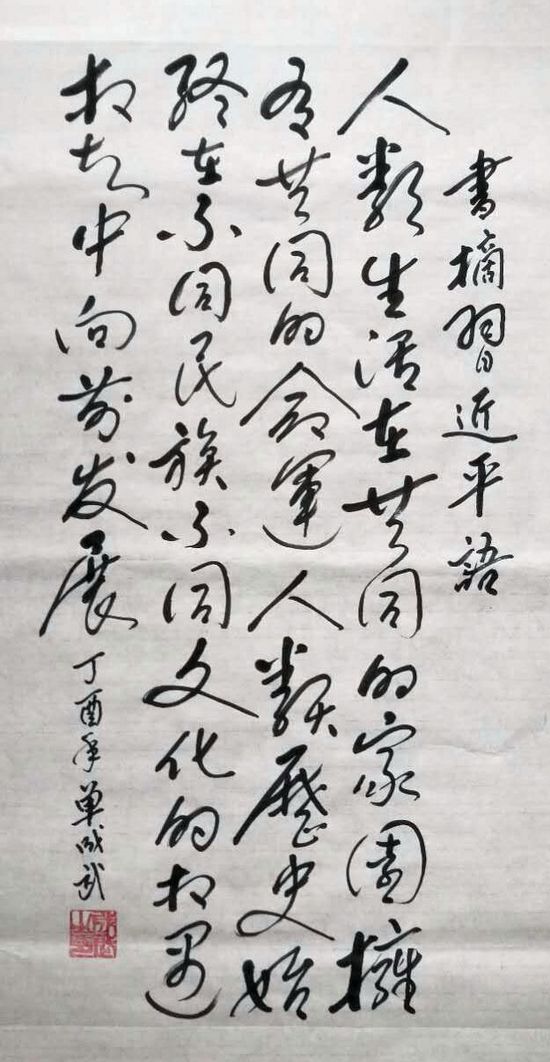 書摘習近平語
人類生活在共同的家園擁
有共同的命運人類歷史始
終在不同民族不同文化的相遇
相知中向前发展
丁酉年单成武